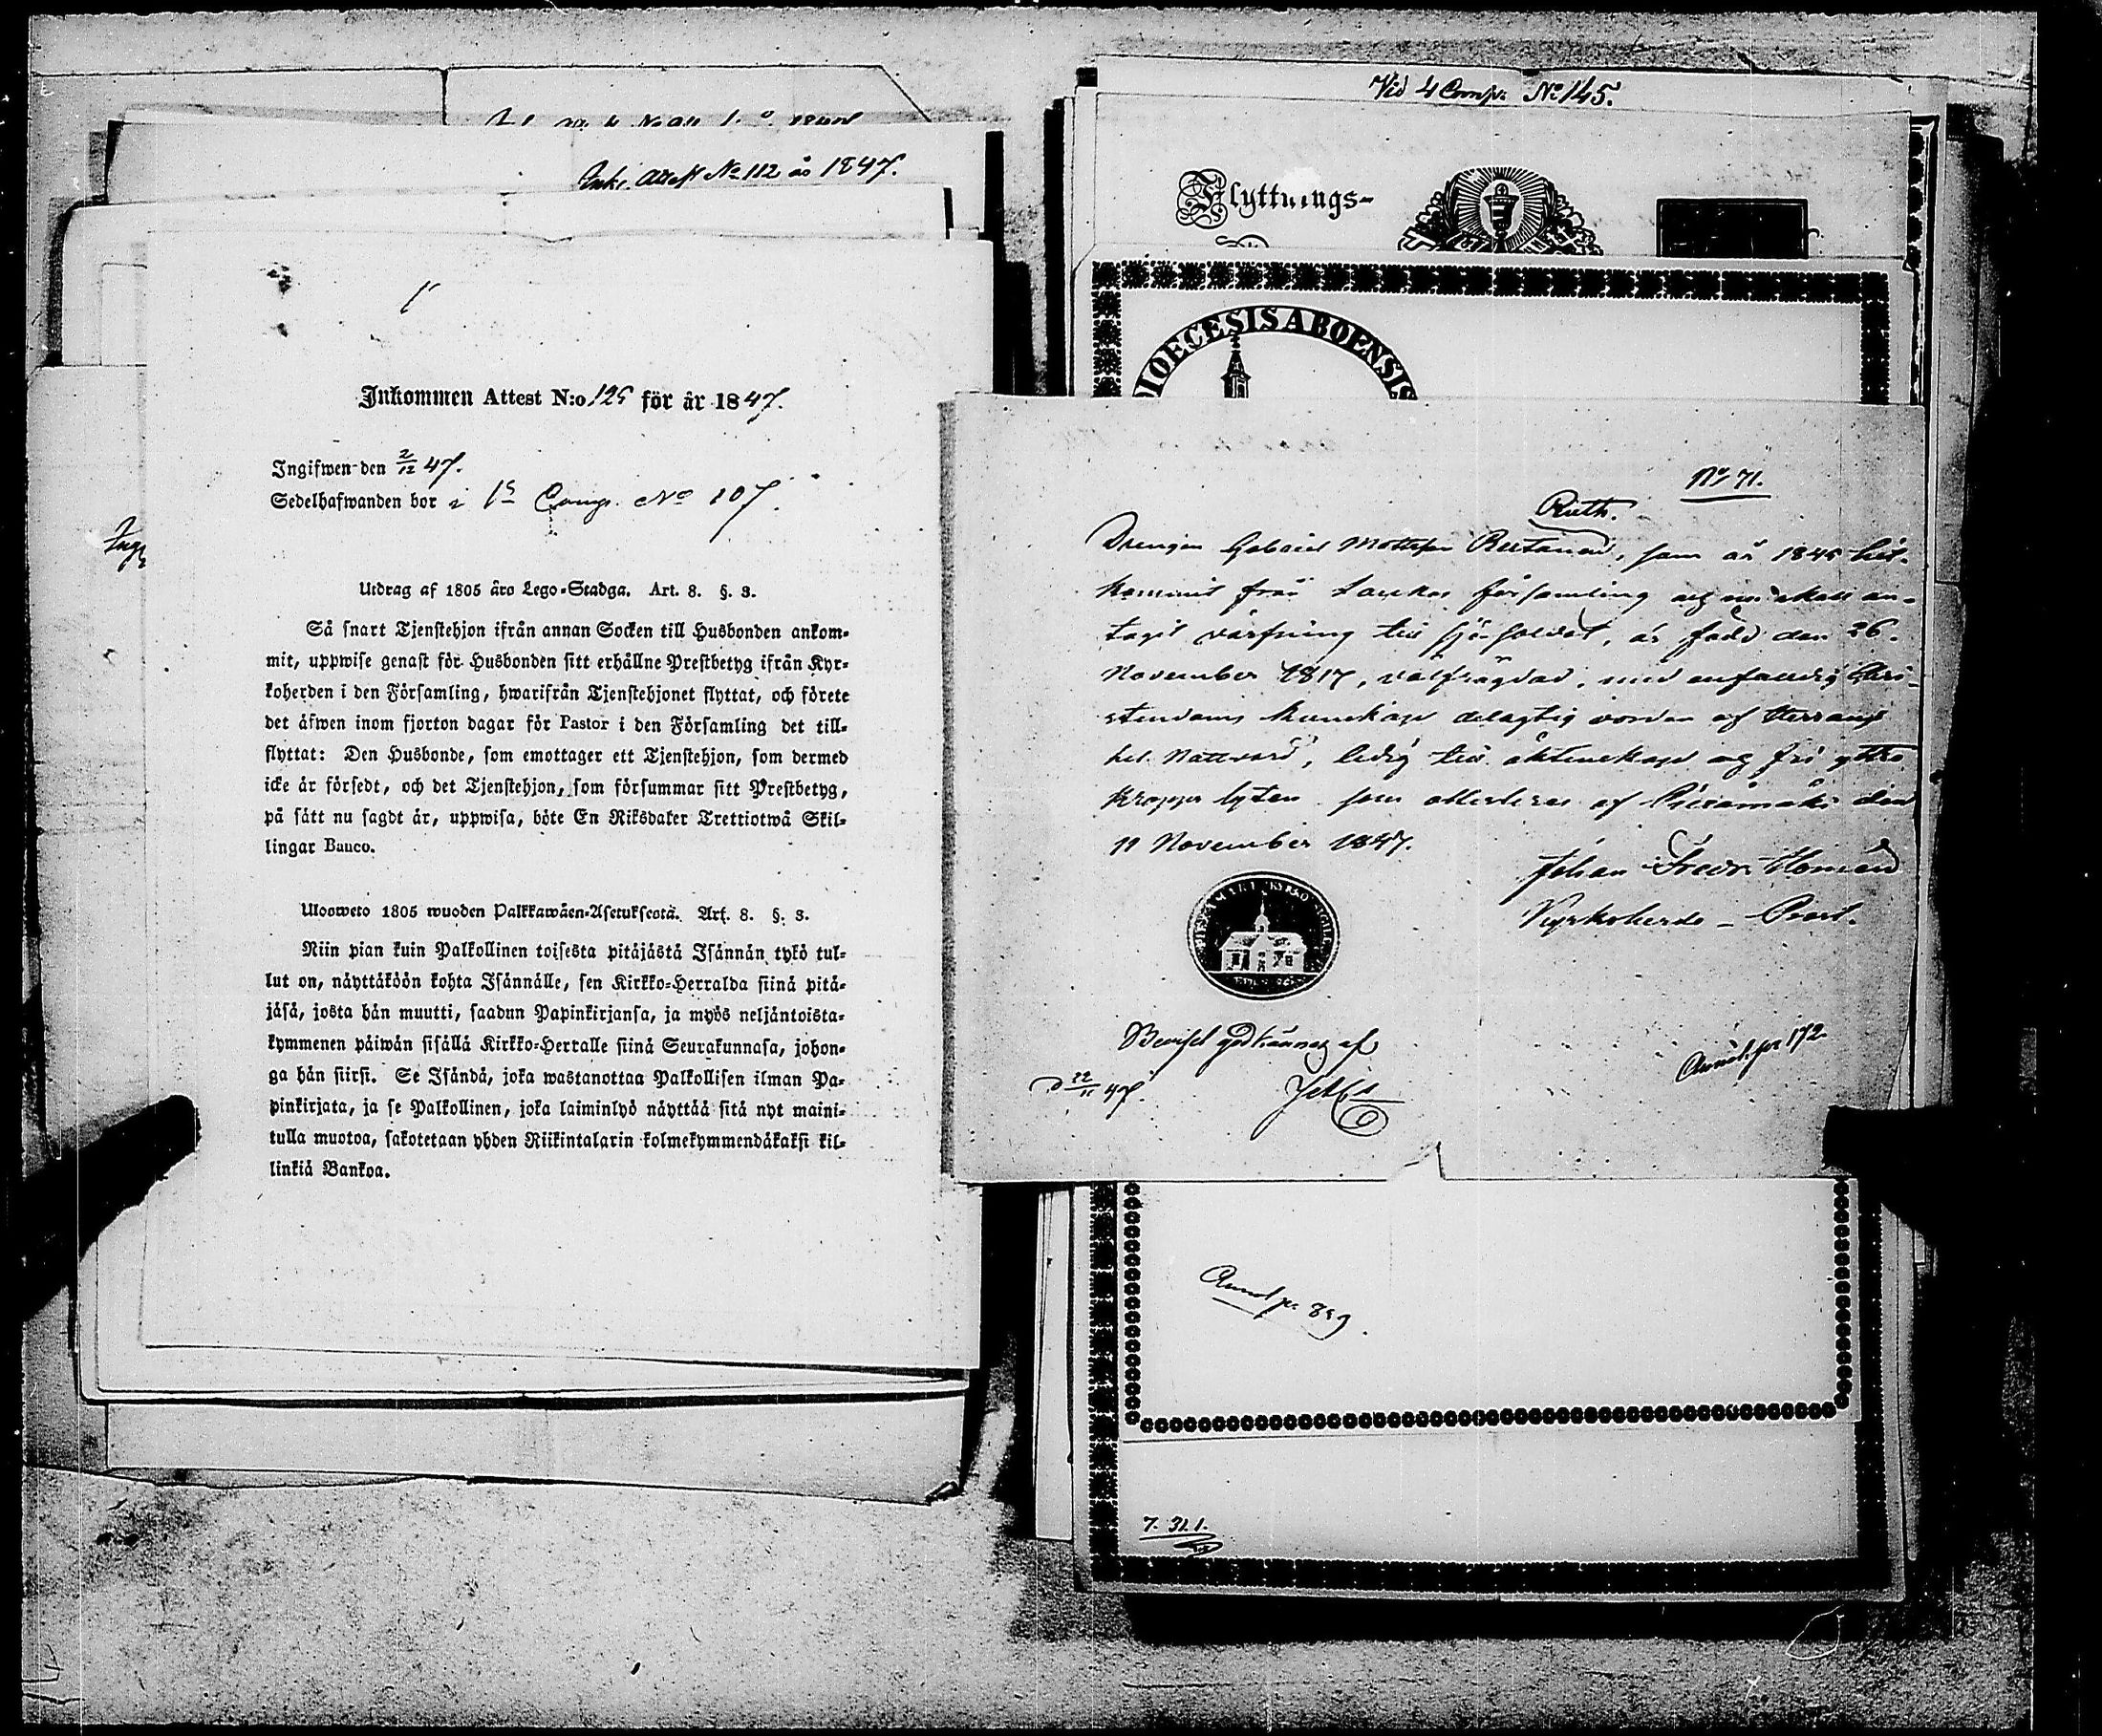 Inkc. Attest No 112 år 1847.
Inkommen Attest N:o 125 för år 1847.
Ingifwen den 2/12 47.
Sedelhafwanden bor i 1s Comp. No 107.
Utdrag af 1805 åro Lego-Stadga. Art. 8. §. 3.
Så snart Tjenstehjon ifrån annan Socken till Husbonden ankom-
mit, uppwise genast för Husbonden sitt erhållne Prestbetyg ifrån Kyr-
koherden i den Församling, hwarifrån Tjenstehjonet flyttat, och förete
det äfwen inom fjorton dagar för Pastor i den Församling det till-
flyttat: Den Husbonde, som emottager ett Tjenstehjon, som dermed
icke är försedt, och det Tjenstehjon, som försummar sitt Prestbetyg,
på sätt nu sagdt är, uppwisa, böte En Riksdaler Trettiotwå Skil-
lingar Banco.
Ulosweto 1805 wuoden Palkkawäen-Asetuksesta. Art. 8. §. 3.
Niin pian kuin Palkollinen toisesta pitäjästä Isännän tykö tul-
lut on, näyttäköön kohta Isännälle, sen Kirkko-Herralda siinä pitä-
jäsä, josta hän muutti, saadun Papinkirjansa, ja myös neljäntoista-
kymmenen päiwän sisällä Kirkko-Herralle siinä Seurakunnasa, johon-
ga hän siirsi. Se Isändä, joka wastanottaa Palkollisen ilman Pa-
pinkirjata, ja se Palkollinen, joka laiminlyö näyttää sitä nyt maini-
tulla muotoa, sakotetaan yhden Riikintalarin kolmekymmendäkaksi kil-
linkiä Bankoa.
Vid 4 Comp. No 145.
Flyttnings-
DIOECESIS ABOENSIS
No 71.
Ruth.
Drengen Gabriel Mattsson Rutanen, som år 1845 hit-
kommit från Laukas församling og
tagit värfning till sjö-soldat, är född den 26.
November 1817, välfrägdad, med
stendoms kunskap delagtig vorden af Herrans
hel. Nattvard, ledig till äktenskap og fri yttre
kropps lyten som attesteras af Pieksämäki den
11 November 1847.
Johan Fredr.
Kyrkoherde - Prost.
Beviset godkännes af
d 22/11 47.
Anmäl. pr 172
Anmäl pr 839.
7. 311.